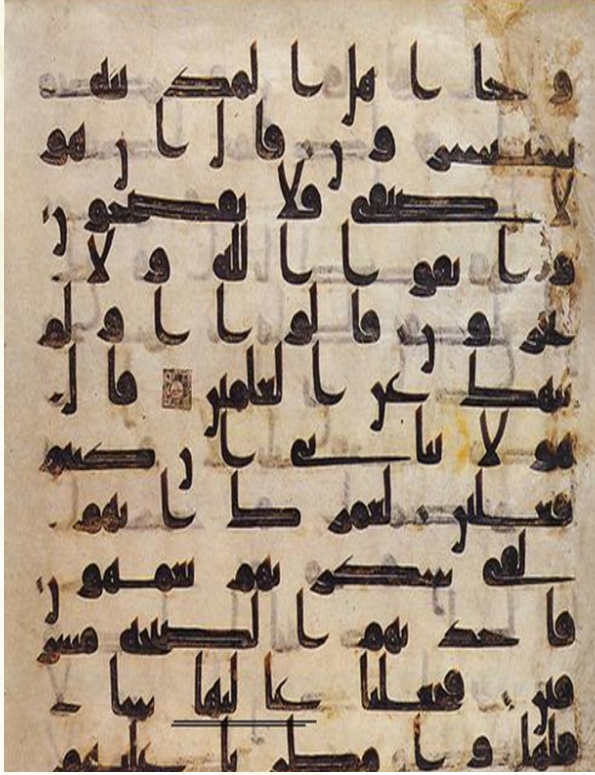 وجا اهل المدينة
يستبشرون قال ان هو
لا ضيفي فلا تفضحون
واتقوا الله ولا
تخزون قالوا اولم
ننهك عن العلمين قال
هولا بناتي ان كنتم
فعلين لعمرك انهم
لفي سكرتهم يعمهون
فاخذتهم الصيحة مشر
قين فجعلنا عاليها سا
فلها وامطرنا عليهم